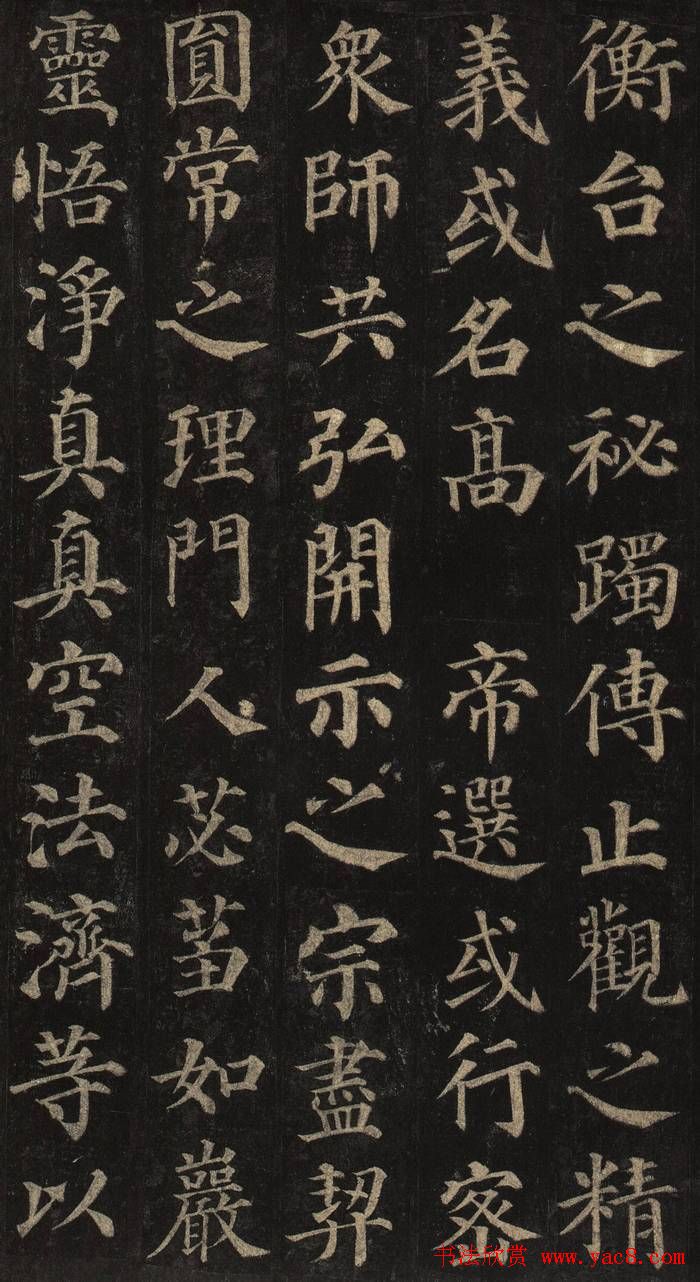 衡台之祕躅傳止觀之精
義或名高 帝選或行密
衆師共弘開示之宗盡契
圓常之理門人苾蒭如巖
靈悟淨真真空法濟等以
书法欣赏 www.yac8.com